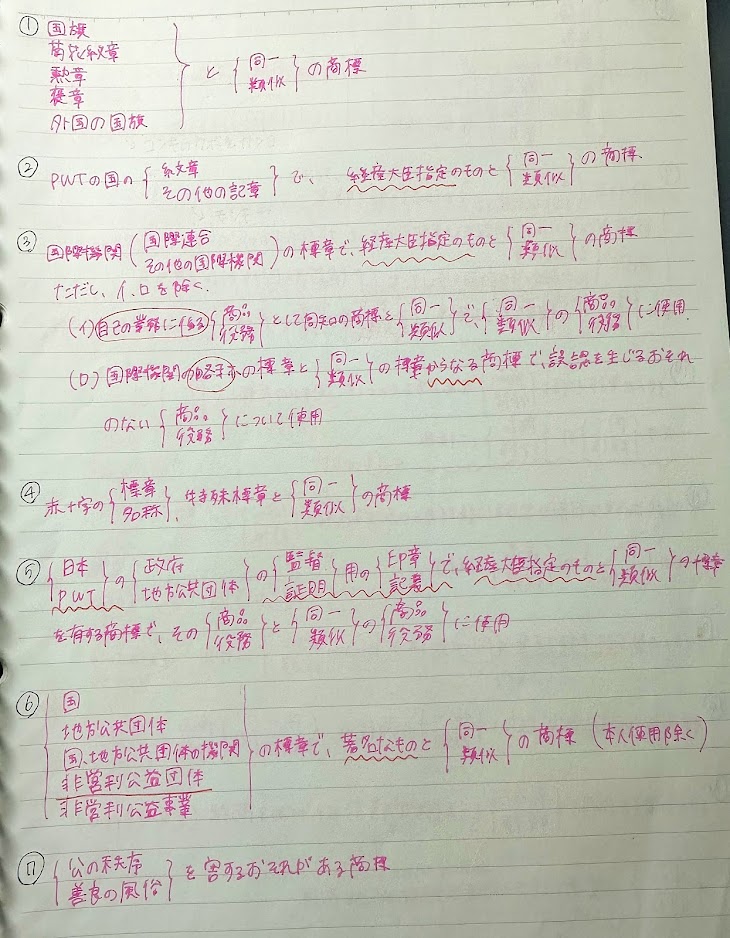 ① 国旗
菊花紋章
勲章
褒章
外国の国旗
と { 同一 類似 } の商標
② PWTの国の { 紋章 その他の記章 } で、経産大臣指定のものと { 同一 類似 } の商標.
③ 国際機関 ( 国際連合 その他の国際機関 ) の標章で、経産大臣指定のものと { 同一 類似 } の商標
ただし、イ、ロを除く.
(イ) 自己の業務に係る { 商品 役務 } として周知の商標と { 同一 類似 } で、{ 同一 類似 } の { 商品 役務 } に使用.
(ロ) 国際機関の略称の標章と { 同一 類似 } の標章からなる商標で、誤認を生じるおそれ
のない { 商品 役務 } について使用
④ 赤十字の { 標章 名称 }、特殊標章と { 同一 類似 } の商標
⑤ { 日本 PWT } の { 政府 地方公共団体 } の { 監督 証明 } 用の { 印章 記章 } で、経産大臣指定のものと { 同一 類似 } の標章
を有する商標で、その { 商品 役務 } と { 同一 類似 } の { 商品 役務 } に使用
⑥ 国
地方公共団体
国、地方公共団体の機関
非営利公益団体
非営利公益事業
の標章で、著名なものと { 同一 類似 } の商標 (本人使用除く)
⑦ { 公の秩序 善良の風俗 } を害するおそれがある商標